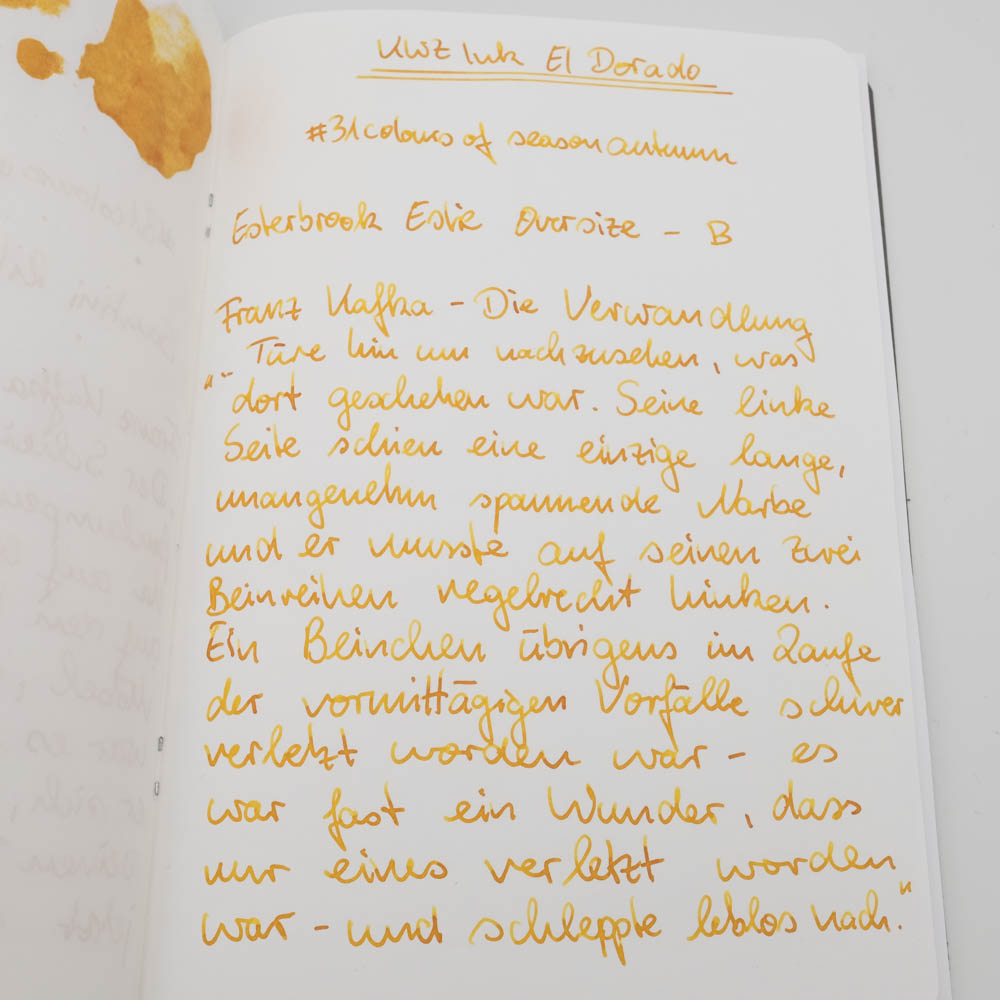 KWZ Ink El Dorado
#31coloursofseasonautumn
Esterbrook Estie Oversize - B
Franz Kafka - Die Verwandlung
"- Türe hin um nachzusehen, was
dort geschehen war. Seine linke
Seite schien eine einzige lange,
unangenehm spannende Narbe
und er musste auf seinen zwei
Beinreihen regebrecht hinken.
Ein Beinchen übrigens im Laufe
der vormittägigen Vorfälle schwer
verletzt worden war - es
war fast ein Wunder, dass
nur eines verletzt worden
war - und schleppte leblos nach."